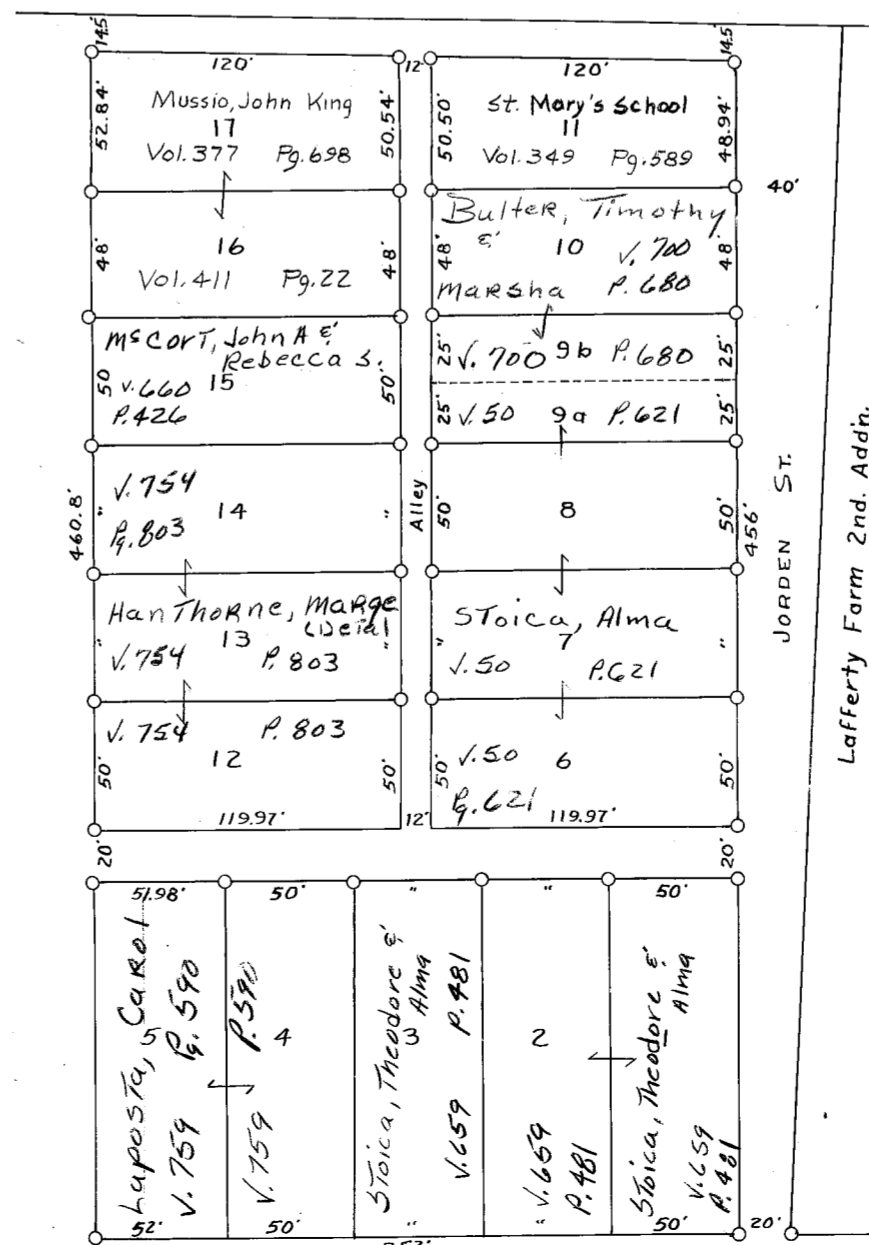 14.5'
14.5'
120'
12'
120'
52.84'
Mussio, John King
17
Vol.377 Pg.698
50.54'
50.50'
St. Mary's School
11
Vol.349 Pg.589
48.94'
40'
48'
16
Vol.411 Pg.22
48'
48'
Bulter, Timothy
&
10
V. 700
Marsha
P. 680
48'
50
McCort, John A &
Rebecca S.
V.660 15
P.426
50'
25'
V. 700 9b P. 680
25'
25'
V.50 9a P.621
25'
460.8'
"
V.754
14
Pg.803
"
Alley
50'
8
50'
456'
JORDEN ST.
Lafferty Farm 2nd. Add'n.
"
HanThorne, Marge
(Detal
13
V.754 P. 803
"
"
Stoica, Alma
7
V.50 P.621
"
50'
V. 754 P. 803
12
50'
50'
V.50 6
Pg.621
50'
119.97'
12'
119.97'
20'
20'
51.98'
50'
"
"
50'
Laposta, Carol
5
V. 759 Pg. 590
4
V.759 P.590
Stoica, Theodore &
Alma
3
V.659 P.481
2
V.659
P.481
Stoica, Theodore &
Alma
V.659
P.481
52'
50'
"
"
50'
20'